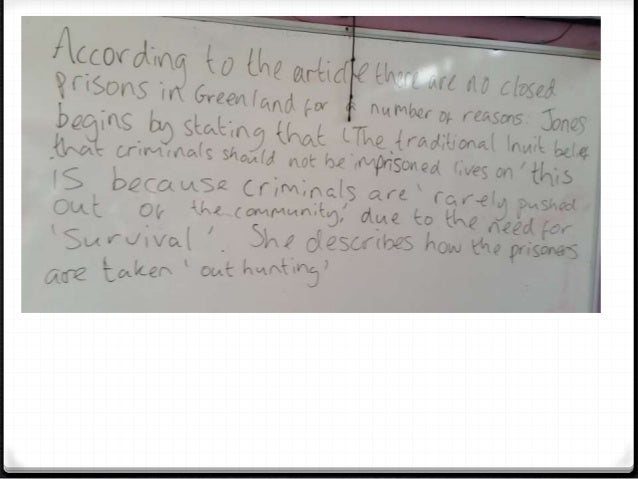 According to the article there are no closed
prisons in Greenland for a number of reasons: Jones
begins by stating that 'The traditional Inuit belief
that criminals should not be imprisoned lives on' this
is because criminals are 'rarely pushed
out of the community,' due to the need for
'Survival'. She describes how the prisoners
are taken 'out hunting'